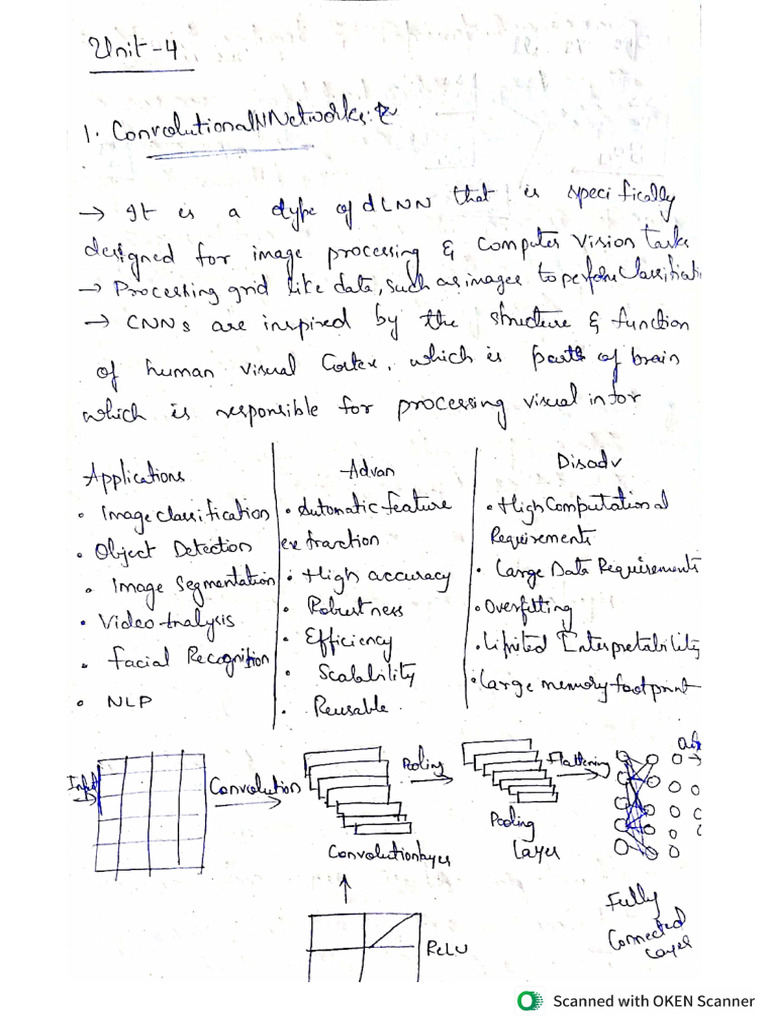 Unit-4
1. Convolutional N Networks:
→ It is a type of dLNN that is specifically
designed for image processing & Computer vision Tasks
→ Processing grid like data, such as images to perform Classificati
→ CNNs are inspired by the structure & function
of human visual Cortex, which is part of brain
which is responsible for processing visual infor
Applications
• Image classification
• Object Detection
• Image Segmentation
• Video Analysis
• Facial Recognition
• NLP
Advan
• Automatic feature
extraction
• High accuracy
• Robustness
• Efficiency
• Scalability
• Reusable
Disadv
• High Computational
Requirements
• Large Data Requirements
• Overfitting
• Limited Interpretability
• Large memory footprint
Input
Convolution
Pooling
Flattening
Convolution layer
Pooling
Layer
ReLU
Fully
Connected
Layer
Scanned with OKEN Scanner